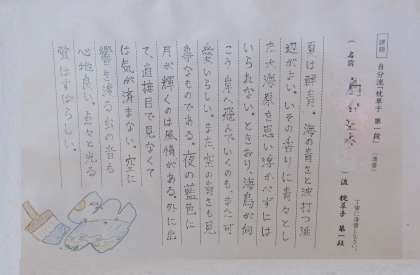 課題 自分流「枕草子 第一段」(清書)
丁寧に清書しなさい。
名前
流 枕草子 第一段
夏は群青。海の青さと波打つ海
辺がよい。いその香りに青々とし
た大海原を思い浮かべずには
いられない。ときおり、海鳥が向
こう岸へ飛んでいくのもまた可
愛いらしい。また、空の青さも見
事なものである。夜の藍色に
月が輝くのは風情がある。外に出
て、直接目で見なくて
は気が済まない。空に
響き渡る虫の音も
心地良い。点々と光る
蛍はすばらしい。